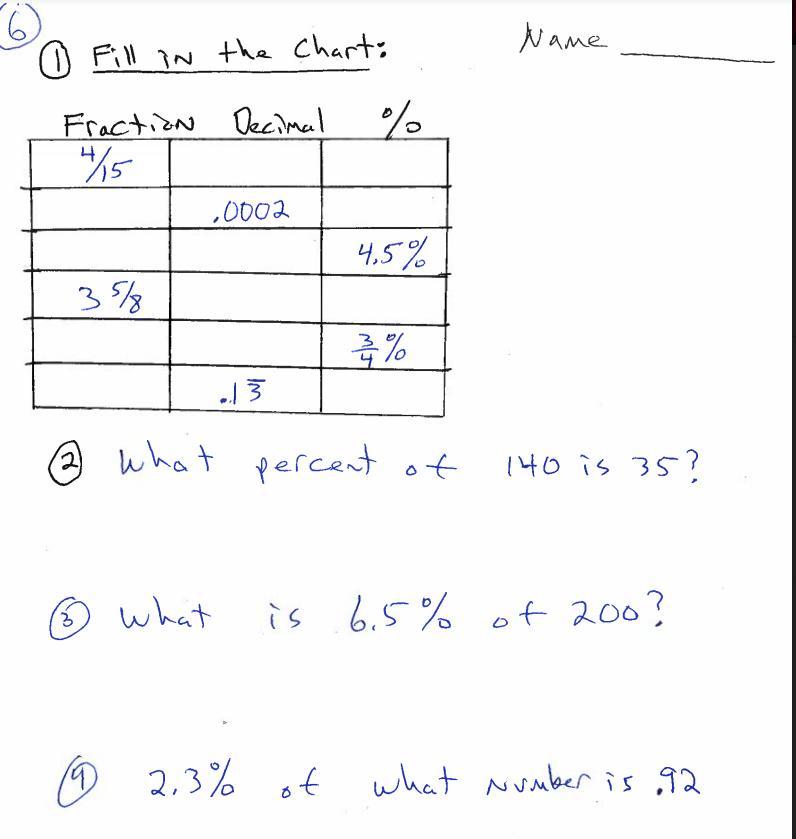 6
① Fill in the Chart: Name
Fraction Decimal %
4/15
.0002
4.5%
3 5/8
3/4 %
.13̅
② What percent of 140 is 35?
③ What is 6.5% of 200?
④ 2.3% of what number is .92